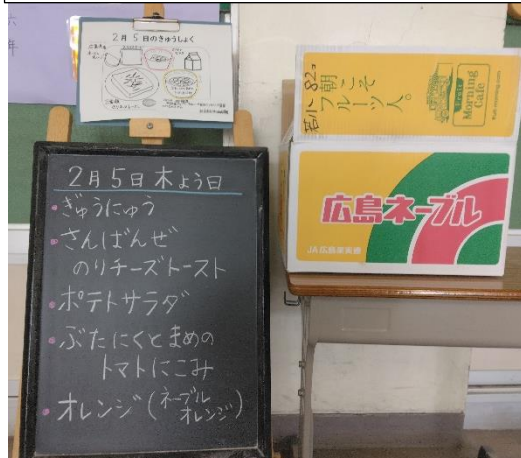 2月5日のきゅうしょく
2月5日木よう日
・ぎゅうにゅう
・さんばんぜ
のりチーズトースト
・ポテトサラダ
・ぶたにくとまめの
トマトにこみ
・オレンジ(ネーブル
オレンジ)
朝こそ
フルーツ人。
Morning
Cafe
広島ネーブル
JA広島果実連